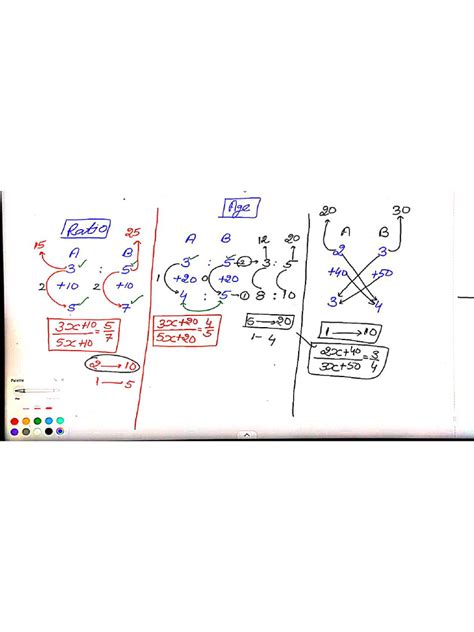 Age
20 30
Ratio
25
15
A B
3 : 5
2 +10 2 +10
5 7
3x+10 = 5
5x+10 7
2 → 10
1 — 5
A B 12 20
3 : 5 → 2 → 3 : 5
1 +20 0 +20
4 : 5 → 1 8 : 10
3x+20 = 4
5x+20 5
5 → 20
1 - 4
A B
2 3
+40 +50
3 4
1 → 10
2x+40 = 3
3x+50 4